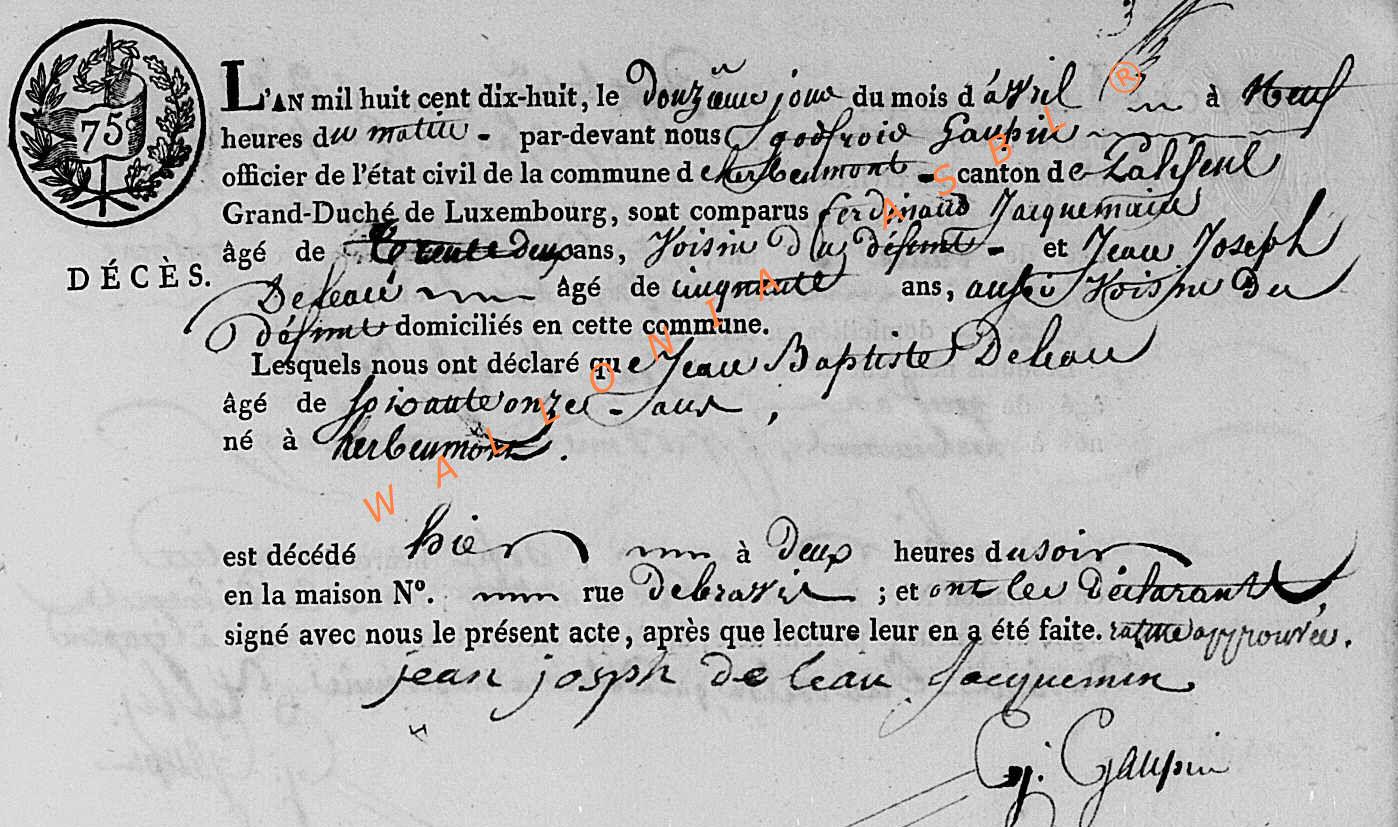 75c
L'AN mil huit cent dix-huit, le douzième jour du mois d'avril à Neuf
heures du matin - par-devant nous godfroid Gaupin
officier de l'état civil de la commune d'herbeumont - canton de Paliseul
Grand-Duché de Luxembourg, sont comparus ferdinand Jacquemain
âgé de trente deux ans, Voisin du défunt - et Jean Joseph
DÉCÈS.
Deleau âgé de cinquante ans, aussi Voisin du
défunt domiciliés en cette commune.
Lesquels nous ont déclaré que Jean Baptiste Deleau
âgé de soixante onze - ans,
né à herbeumont.
est décédé hier à deux heures du soir
en la maison N°. rue ; et ont les déclarants,
signé avec nous le présent acte, après que lecture leur en a été faite. rature approuvée.
jean josph de leau Jacquemin
G. Gaupin
WALLONIA ASBL ®